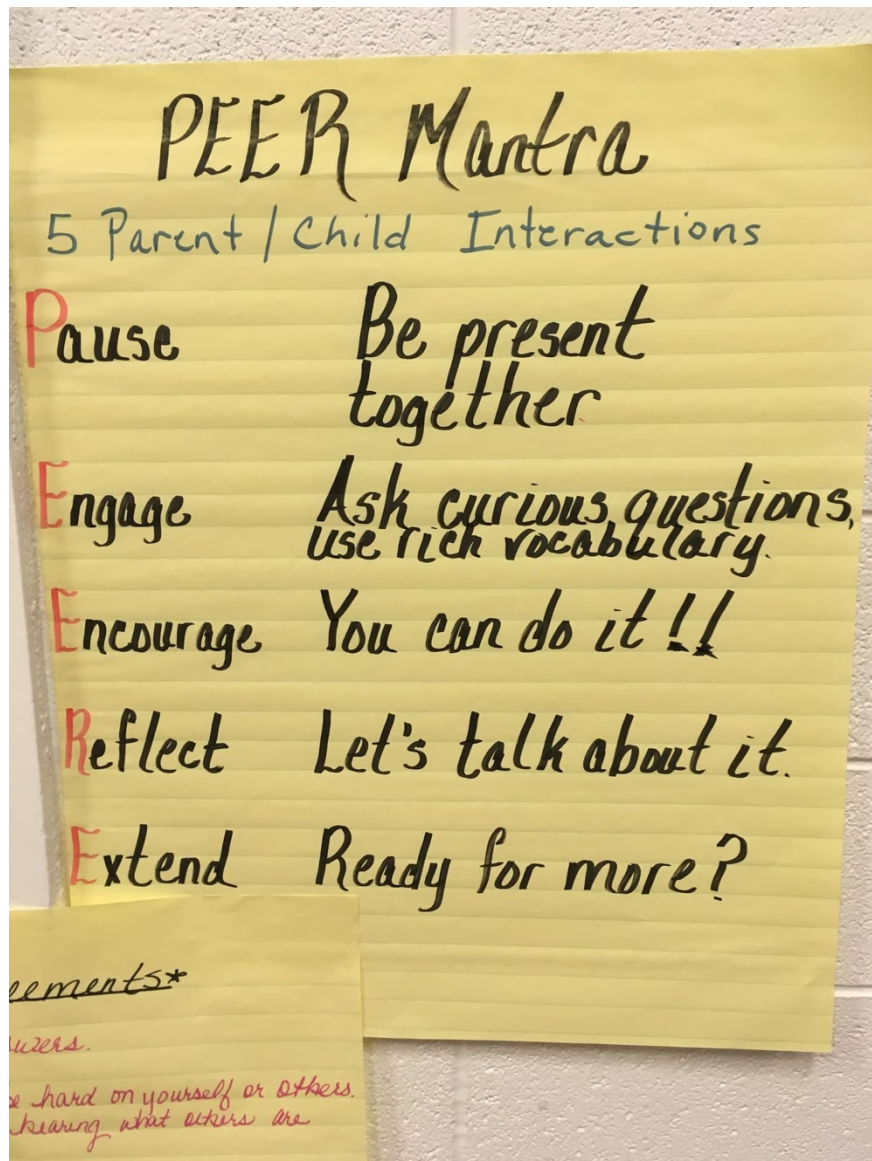 PEER Mantra
5 Parent / Child Interactions
Pause Be present
together
Engage Ask curious questions,
use rich vocabulary.
Encourage You can do it!!
Reflect Let's talk about it.
Extend Ready for more?
eements*
uzers.
e hard on yourself or others.
hearing what others are